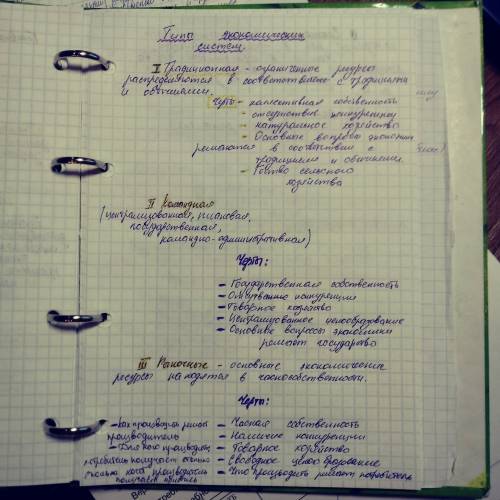 Типы экономических
систем.
I Традиционная - ограниченные ресурсы
распределяются в соответствие с традициями
и обычаями.
Черты - коллективная собственность
- отсутствие конкуренции
- натуральное хозяйство
- Основные вопросы экономики
решаются в соответствии с
традициями и обычаями
- Гство сельского
хозяйства
II Командная
(централизованная, плановая,
государственная,
командно-административная)
Черты:
- Государственная собственность
- Отсутствие конкуренции
- Товарное хозяйство
- Централизованное ценообразование
- Основные вопросы экономики
решает государство
III Рыночные - основные экономические
ресурсы находятся в частнособственности.
Черты:
- Частная собственность
- Наличие конкуренции
- Товарное хозяйство
- Свободное ценообразование
- Что производить решает потребитель
- как производить решает
производитель
- Для кого производить,
потребитель получает столько
сколько хочет производитель
получает прибыль